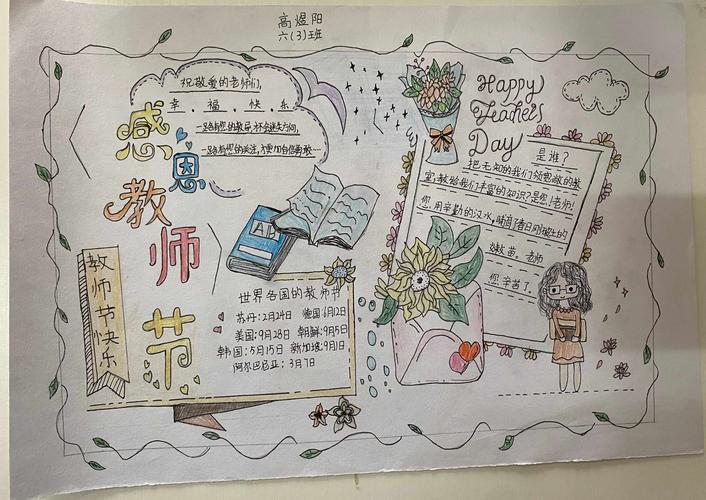 高煜阳
六(3)班
祝敬爱的老师们,
幸、福、快、乐
一路有您的教导,才会迷失方向,
一路有您的关注,才更加自信勇敢…
感恩教师节
教师节快乐
世界各国的教师节
苏丹:2月24日 德国:6月12日
美国:9月28日 朝鲜:9月5日
韩国:5月15日 新加坡:9月1日
阿尔巴尼亚:3月7日
Happy
Teacher's
Day
是谁?
把无知的我们领
室,教给我们丰富的知识?是您!老师!
您用辛勤的汗水,哺育了春日刚破土的
嫩苗,老师
您辛苦了。